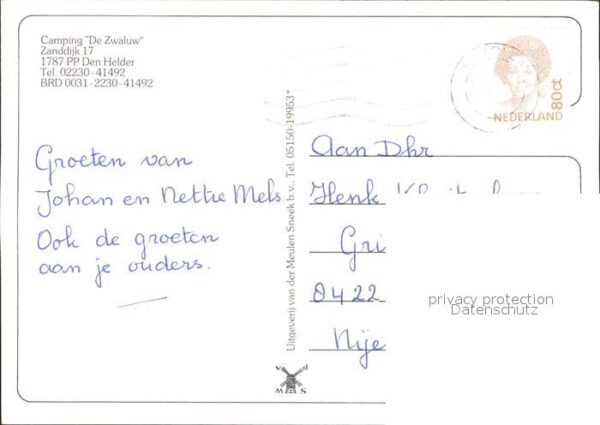 Camping "De Zwaluw"
Zanddijk 17
1787 PP Den Helder
Tel. 02230-41492
BRD 0031-2230-41492
Groeten van
Johan en Nettie Mels
Ook de groeten
aan je ouders.
Uitgeverij van der Meulen Sneek b.v., Tel. 05150-19953*
v d
M S
NEDERLAND
80ct
Aan Dhr
Henk
Gri
8422
Nije
privacy protection
Datenschutz